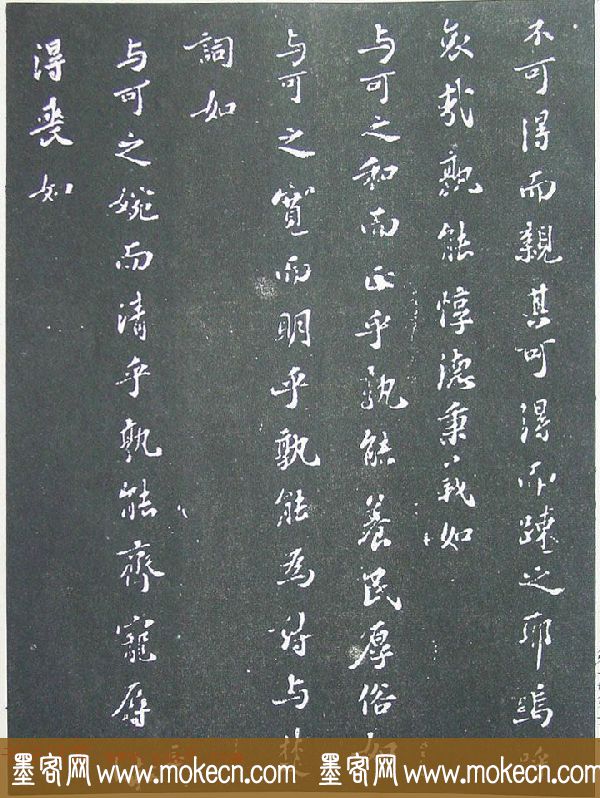 不可得而親其可得而踈之耶嗚呼
哀哉孰能惇德秉義如
与可之和而正乎孰能養民厚俗如
与可之寬而明乎孰能為詩与楚
詞如
与可之婉而清乎孰能齊寵辱
得喪如
墨客网 www.mokecn.com 墨客网 www.mokecn.com